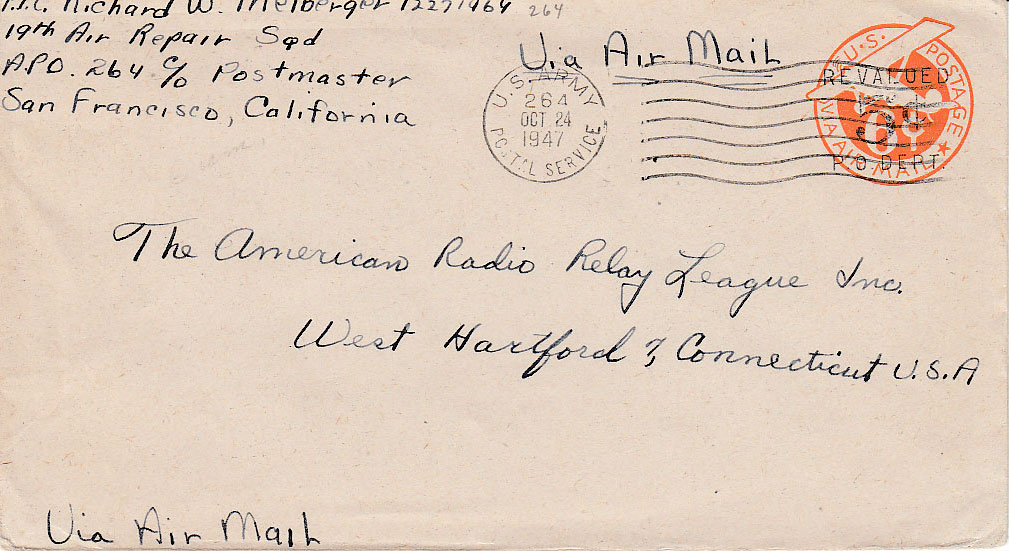 Pfc. Richard W. Melberger 12271964 264
19th Air Repair Sqd
A.P.O. 264 c/o Postmaster
San Francisco, California
Via Air Mail
U.S. ARMY
264
OCT 24
1947
POSTAL SERVICE
U.S. POSTAGE
REVALUED
5¢
6¢
P.O. DEPT.
VIA AIR MAIL
The American Radio Relay League Inc.
West Hartford 7, Connecticut U.S.A
Via Air Mail